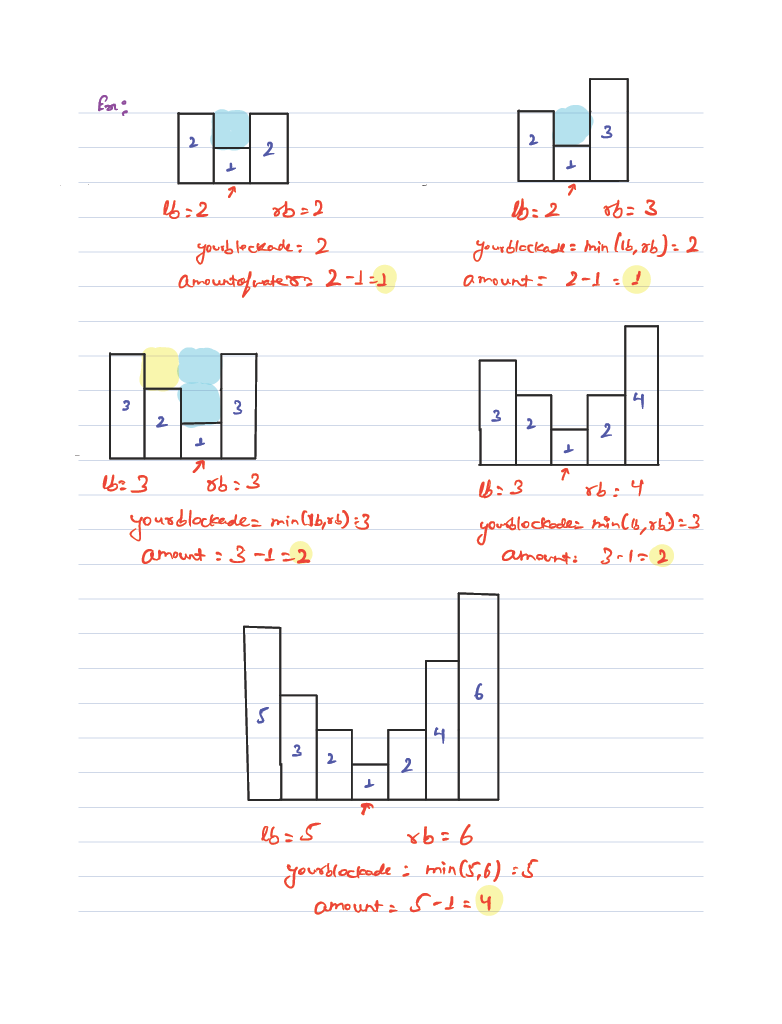 Ex:
2 1 2
lb = 2 rb = 2
yourblockade = 2
amountofwater = 2 - 1 = 1
2 1 3
lb = 2 rb = 3
yourblockade = min(lb, rb) = 2
amount = 2 - 1 = 1
3 2 1 3
lb = 3 rb = 3
yourblockade = min(lb, rb) = 3
amount = 3 - 1 = 2
3 2 1 2 4
lb = 3 rb = 4
yourblockade = min(lb, rb) = 3
amount = 3 - 1 = 2
5 3 2 1 2 4 6
lb = 5 rb = 6
yourblockade = min(5,6) = 5
amount = 5 - 1 = 4